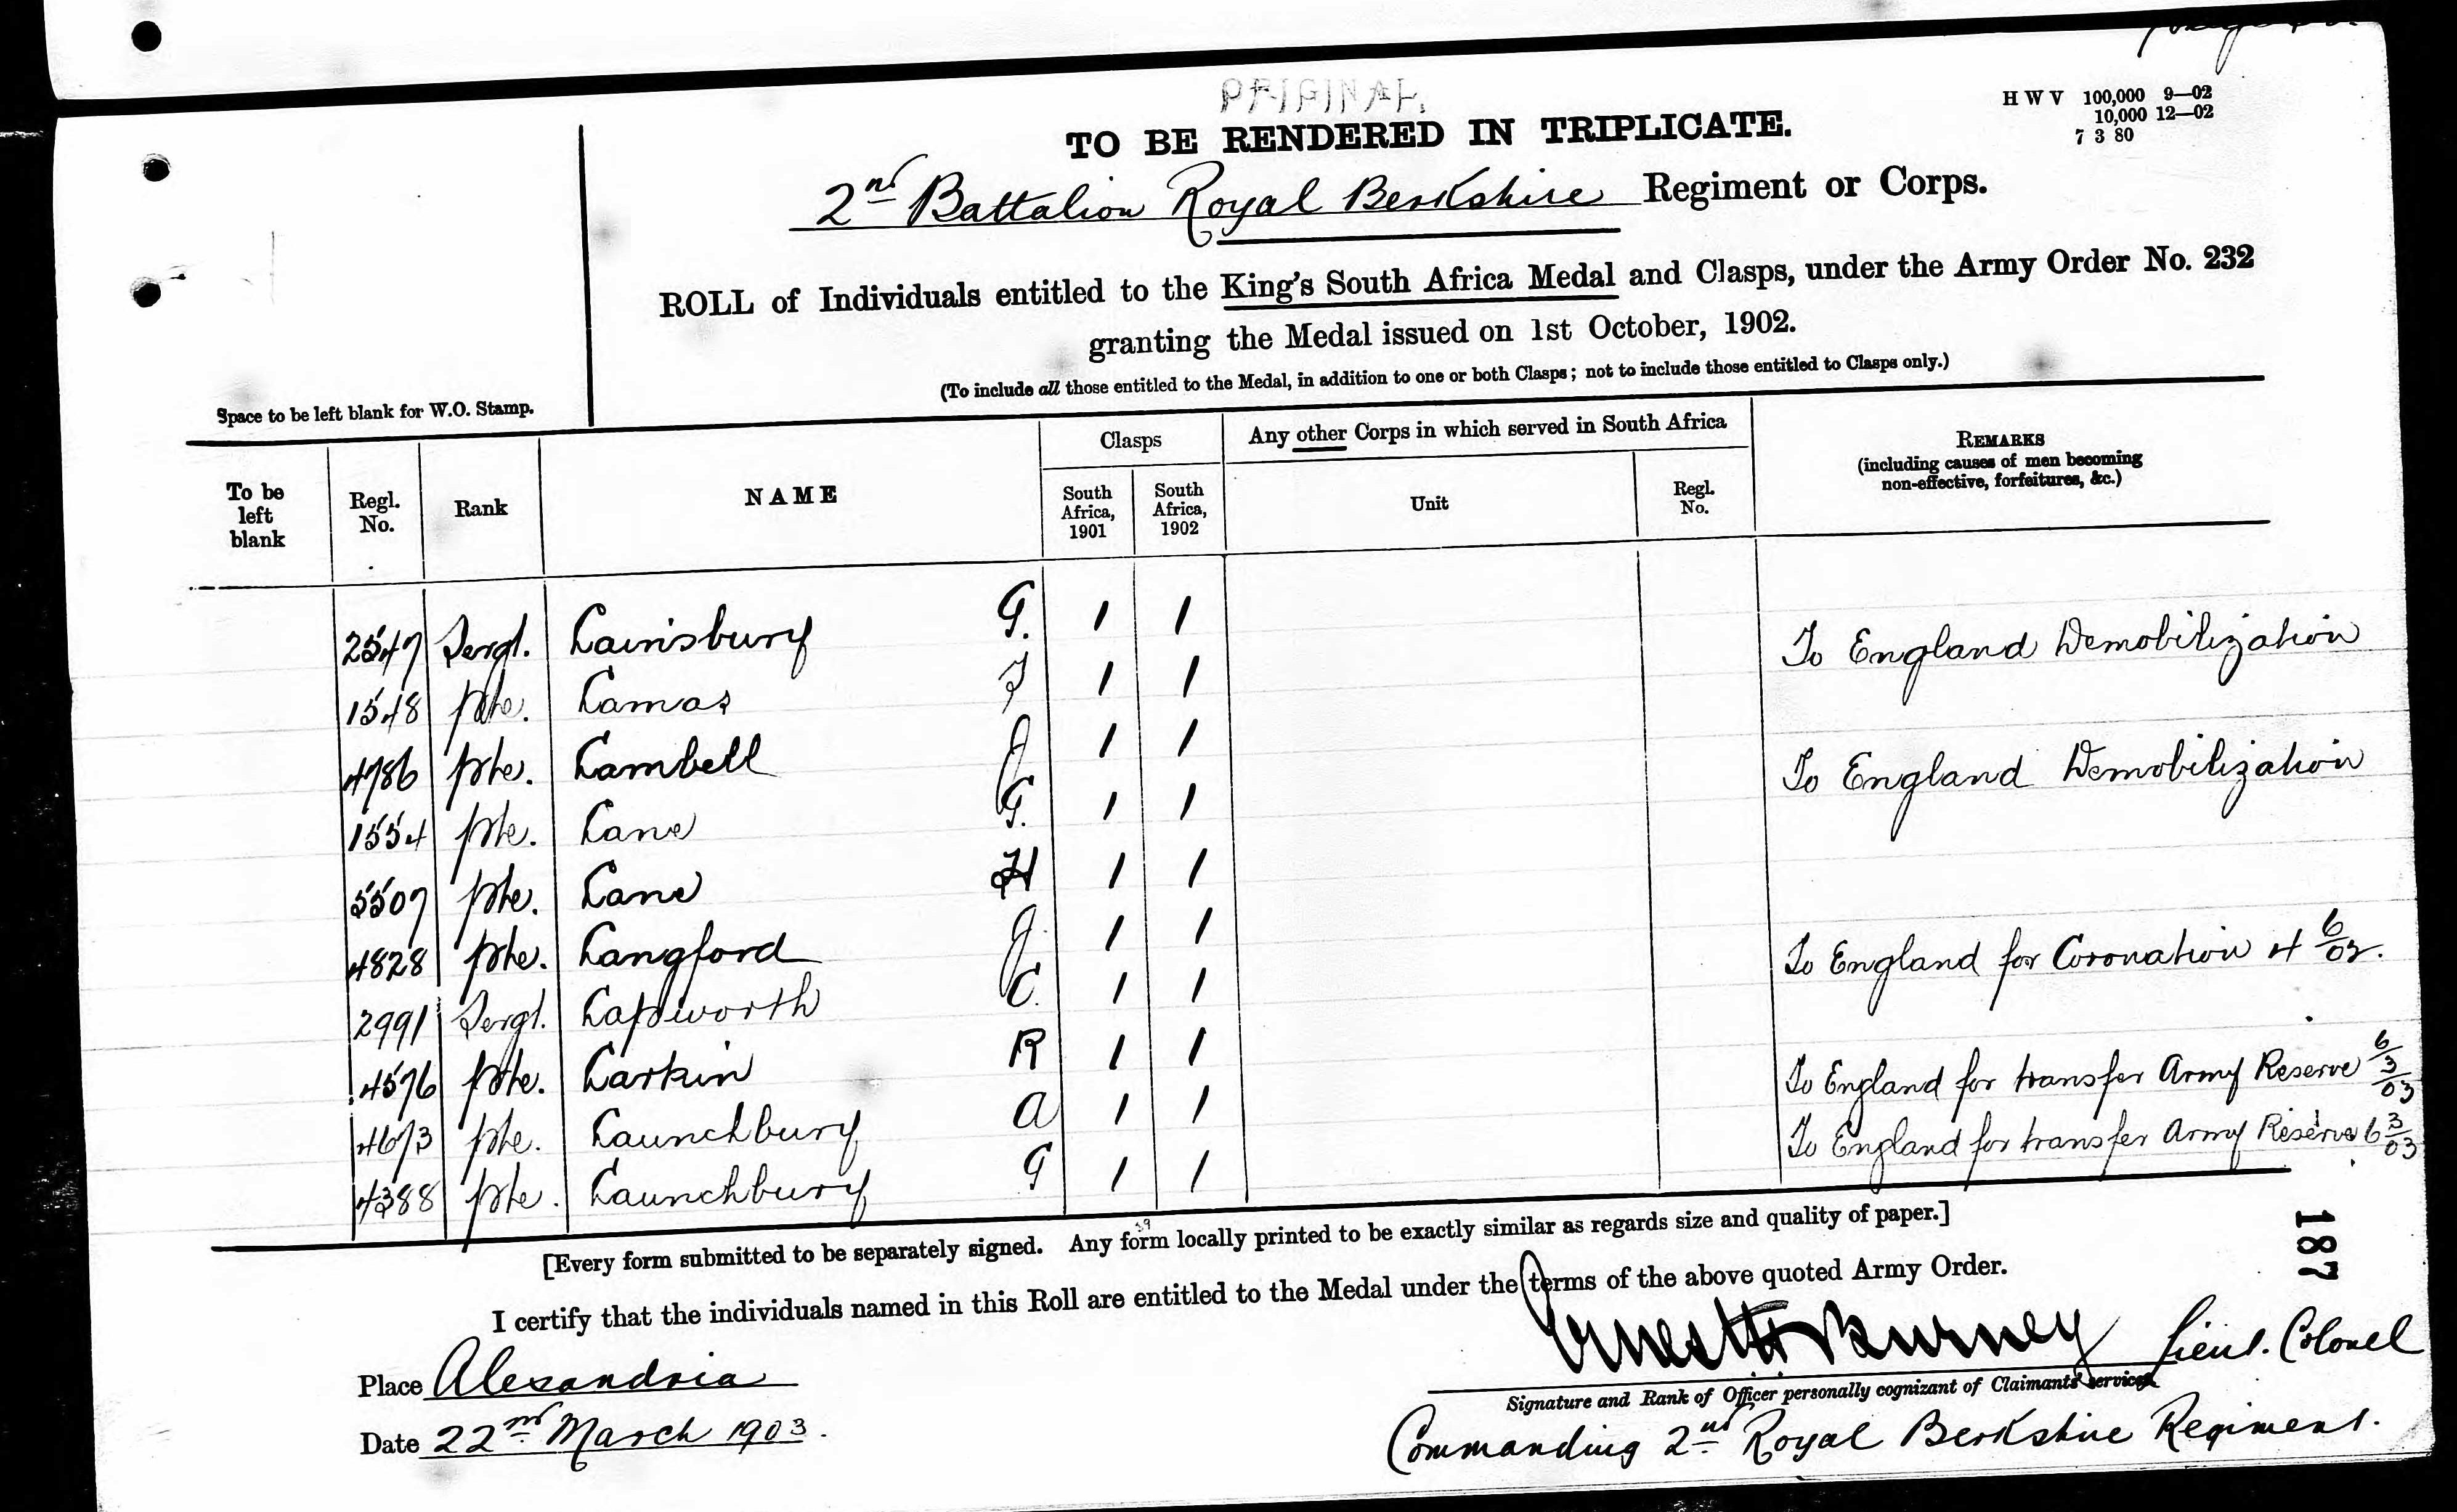 ORIGINAL.
H W V 100,000 9—02
10,000 12—02
7 3 80
TO BE RENDERED IN TRIPLICATE.
2nd Battalion Royal Berkshire Regiment or Corps.
ROLL of Individuals entitled to the King's South Africa Medal and Clasps, under the Army Order No. 232
granting the Medal issued on 1st October, 1902.
(To include all those entitled to the Medal, in addition to one or both Clasps; not to include those entitled to Clasps only.)
Space to be left blank for W.O. Stamp.
To be left blank Regl. No. Rank NAME Clasps South Africa, 1901 South Africa, 1902 Any other Corps in which served in South Africa Unit Regl. No. REMARKS (including causes of men becoming non-effective, forfeitures, &c.)
2547 Sergt. Lainsbury G. 1 1 To England Demobilization
1548 Pte. Lamas 1 1
4786 Pte. Lambell J 1 1 To England Demobilization
1554 Pte. Lane G. 1 1
5507 Pte. Lane H 1 1
4828 Pte. Langford J. 1 1 To England for Coronation 4 6/02.
2991 Sergt. Lapworth C. 1 1
4576 Pte. Larkin R 1 1 To England for transfer Army Reserve 6/3/03
4673 Pte. Launchbury A 1 1 To England for transfer Army Reserve 6 3/03
4388 Pte. Launchbury G 1 1
[Every form submitted to be separately signed. Any form locally printed to be exactly similar as regards size and quality of paper.]
187
I certify that the individuals named in this Roll are entitled to the Medal under the terms of the above quoted Army Order.
Ernest H Burney Lieut. Colonel
Place Alexandria
Signature and Rank of Officer personally cognizant of Claimants' services
Date 22nd March 1903.
Commanding 2nd Royal Berkshire Regiment.